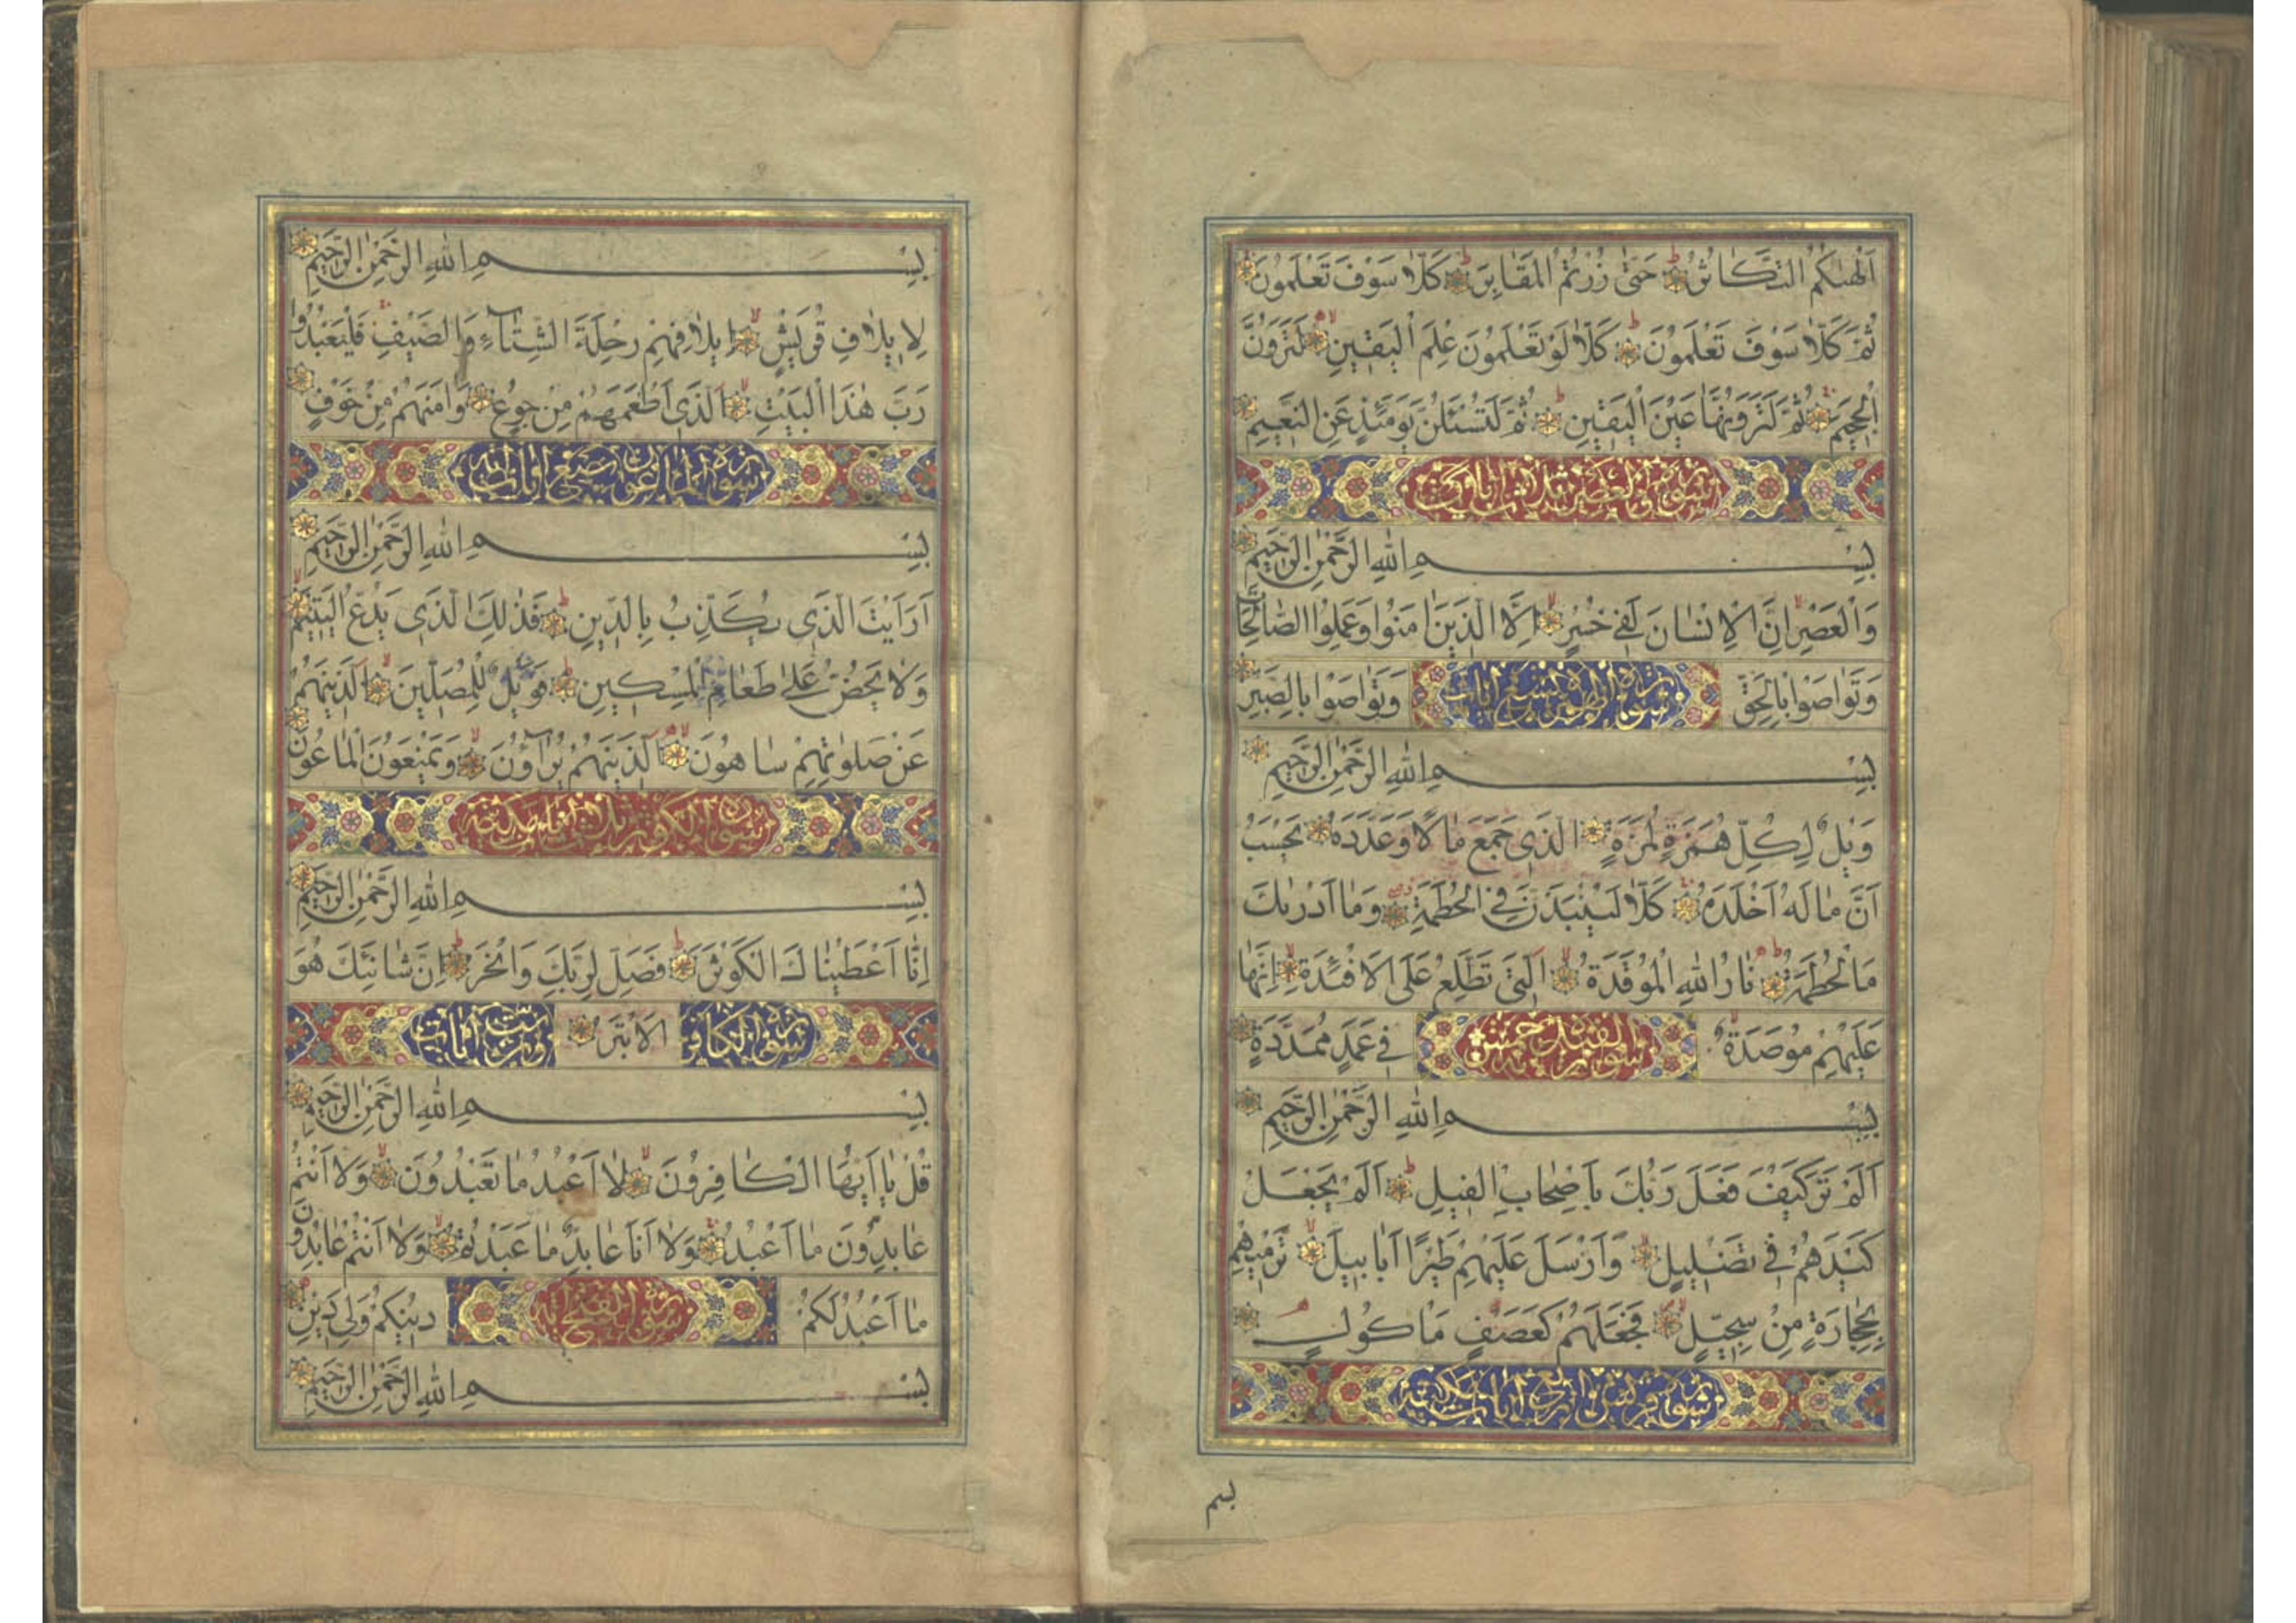 اَلْهٰىكُمُ التَّكَاثُرُ حَتّٰى زُرْتُمُ الْمَقَابِرَ كَلَّا سَوْفَ تَعْلَمُونَ
ثُمَّ كَلَّا سَوْفَ تَعْلَمُونَ كَلَّا لَوْ تَعْلَمُونَ عِلْمَ الْيَقِينِ لَتَرَوُنَّ
الْجَحِيمَ ثُمَّ لَتَرَوُنَّهَا عَيْنَ الْيَقِينِ ثُمَّ لَتُسْئَلُنَّ يَوْمَئِذٍ عَنِ النَّعِيمِ
سورة والعصر ثلاث ايات مكية
بِسْمِ اللهِ الرَّحْمٰنِ الرَّحِيمِ
وَالْعَصْرِ اِنَّ الْاِنْسَانَ لَفِي خُسْرٍ اِلَّا الَّذِينَ اٰمَنُوا وَعَمِلُوا الصَّالِحَاتِ
وَتَوَاصَوْا بِالْحَقِّ سورة الهمزة تسع ايات وَتَوَاصَوْا بِالصَّبْرِ
بِسْمِ اللهِ الرَّحْمٰنِ الرَّحِيمِ
وَيْلٌ لِكُلِّ هُمَزَةٍ لُمَزَةٍ الَّذِي جَمَعَ مَالًا وَعَدَّدَهُ يَحْسَبُ
اَنَّ مَالَهُ اَخْلَدَهُ كَلَّا لَيُنْبَذَنَّ فِي الْحُطَمَةِ وَمَا اَدْرٰىكَ
مَا الْحُطَمَةُ نَارُ اللهِ الْمُوقَدَةُ الَّتِي تَطَّلِعُ عَلَى الْاَفْئِدَةِ اِنَّهَا
عَلَيْهِمْ مُوصَدَةٌ سورة الفيل خمس ايات فِي عَمَدٍ مُمَدَّدَةٍ
بِسْمِ اللهِ الرَّحْمٰنِ الرَّحِيمِ
اَلَمْ تَرَ كَيْفَ فَعَلَ رَبُّكَ بِاَصْحَابِ الْفِيلِ اَلَمْ يَجْعَلْ
كَيْدَهُمْ فِي تَضْلِيلٍ وَاَرْسَلَ عَلَيْهِمْ طَيْرًا اَبَابِيلَ تَرْمِيهِمْ
بِحِجَارَةٍ مِنْ سِجِّيلٍ فَجَعَلَهُمْ كَعَصْفٍ مَأْكُولٍ
سورة قريش اربع ايات مكية
بسم
بِسْمِ اللهِ الرَّحْمٰنِ الرَّحِيمِ
لِاِيلَافِ قُرَيْشٍ اِيلَافِهِمْ رِحْلَةَ الشِّتَاءِ وَالصَّيْفِ فَلْيَعْبُدُوا
رَبَّ هٰذَا الْبَيْتِ الَّذِي اَطْعَمَهُمْ مِنْ جُوعٍ وَاٰمَنَهُمْ مِنْ خَوْفٍ
سورة الماعون ايات
بِسْمِ اللهِ الرَّحْمٰنِ الرَّحِيمِ
اَرَاَيْتَ الَّذِي يُكَذِّبُ بِالدِّينِ فَذٰلِكَ الَّذِي يَدُعُّ الْيَتِيمَ
وَلَا يَحُضُّ عَلٰى طَعَامِ الْمِسْكِينِ فَوَيْلٌ لِلْمُصَلِّينَ الَّذِينَهُمْ
عَنْ صَلَوٰتِهِمْ سَاهُونَ الَّذِينَهُمْ يُرَاؤُنَ وَيَمْنَعُونَ الْمَاعُونَ
سورة الكوثر ثلاث ايات مكية
بِسْمِ اللهِ الرَّحْمٰنِ الرَّحِيمِ
اِنَّا اَعْطَيْنَاكَ الْكَوْثَرَ فَصَلِّ لِرَبِّكَ وَانْحَرْ اِنَّ شَانِئَكَ هُوَ
سورة الكافرون الْاَبْتَرُ ست ايات
بِسْمِ اللهِ الرَّحْمٰنِ الرَّحِيمِ
قُلْ يَا اَيُّهَا الْكَافِرُونَ لَا اَعْبُدُ مَا تَعْبُدُونَ وَلَا اَنْتُمْ
عَابِدُونَ مَا اَعْبُدُ وَلَا اَنَا عَابِدٌ مَا عَبَدْتُمْ وَلَا اَنْتُمْ عَابِدُونَ
مَا اَعْبُدُ لَكُمْ سورة الفتح دِينُكُمْ وَلِيَ دِينِ
بِسْمِ اللهِ الرَّحْمٰنِ الرَّحِيمِ